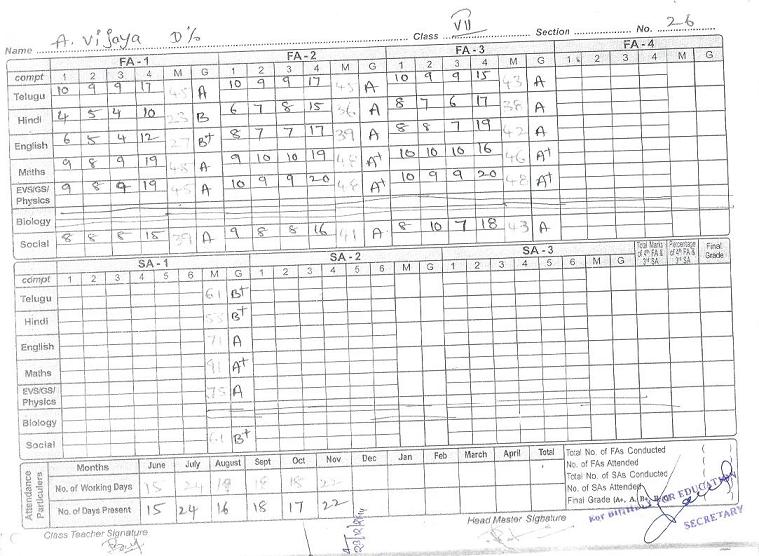 Name A. Vijaya D% Class VII Section No. 26
FA - 1 FA - 2 FA - 3 FA - 4
compt 1 2 3 4 M G 1 2 3 4 M G 1 2 3 4 M G 1 2 3 4 M G
Telugu 10 9 9 17 45 A 10 9 9 17 45 A 10 9 9 15 43 A
Hindi 4 5 4 10 23 B 6 7 8 15 36 A 8 7 6 17 38 A
English 6 5 4 12 27 B+ 8 7 7 17 39 A 8 8 7 19 42 A
Maths 9 8 9 19 45 A 9 10 10 19 48 A+ 10 10 10 16 46 A+
EVS/GS/ Physics 9 8 9 19 45 A 10 9 9 20 48 A+ 10 9 9 20 48 A+
Biology
Social 8 8 8 15 39 A 9 8 8 16 41 A 8 10 7 18 43 A
SA - 1 SA - 2 SA - 3 Total Marks of 4th FA & 3rd SA Percentage of 4th FA & 3rd SA Final Grade
compt 1 2 3 4 5 6 M G 1 2 3 4 5 6 M G 1 2 3 4 5 6 M G
Telugu 61 B+
Hindi 53 B+
English 71 A
Maths 91 A+
EVS/GS/ Physics 75 A
Biology
Social 61 B+
Attendance Particulars
Months June July August Sept Oct Nov Dec Jan Feb March April Total
No. of Working Days 15 24 18 18 22
No. of Days Present 15 24 16 18 17 22
Total No. of FAs Conducted ( )
No. of FAs Attended
Total No. of SAs Conducted ( )
No. of SAs Attended
Final Grade (A+, A, B+, B
FOR EDUCATION
SECRETARY
Class Teacher Signature
Head Master Signature